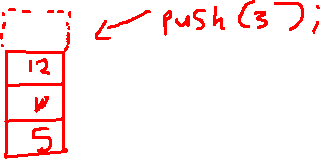 push(3);
12
5